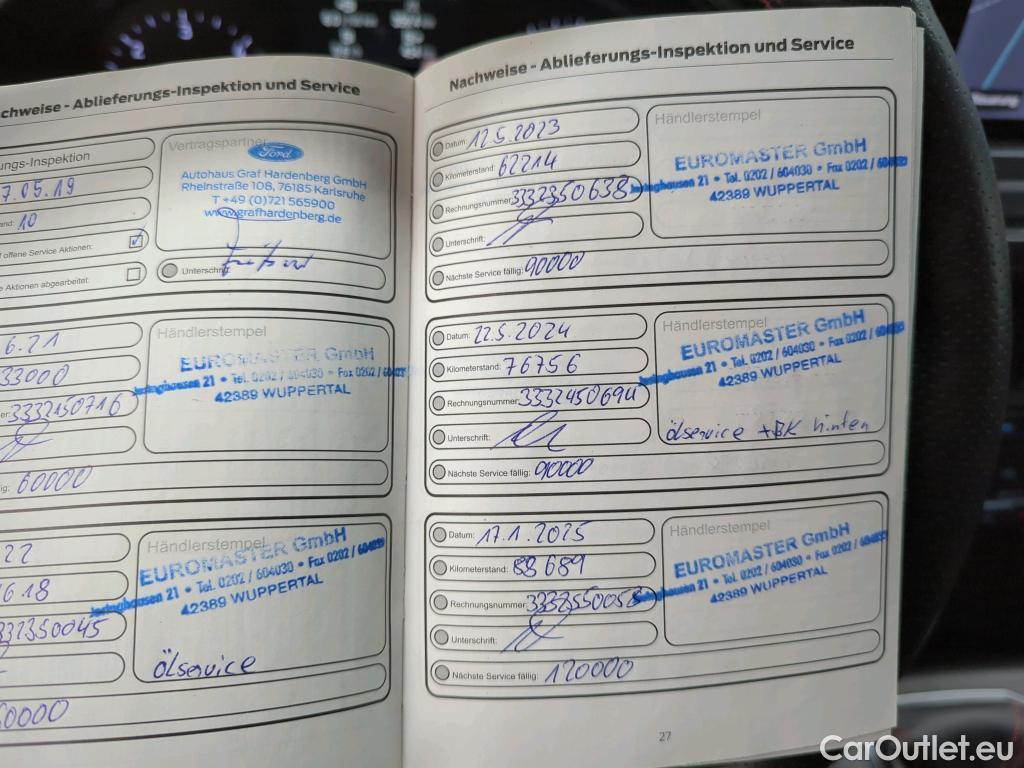 chweise - Ablieferungs-Inspektion und Service
ungs-Inspektion
7.05.19
and: 10
f offene Service Aktionen:
e Aktionen abgearbeitet:
Vertragspartner
Ford
Autohaus Graf Hardenberg GmbH
Rheinstraße 108, 76185 Karlsruhe
T +49 (0)721 565900
www.grafhardenberg.de
Unterschrift
6.21
33000
er: 3332150716
ig: 60000
Händlerstempel
EUROMASTER GmbH
Jesinghausen 21 • Tel. 0202 / 604030 • Fax 0202 / 604039
42389 WUPPERTAL
22
1618
332350045
60000
Händlerstempel
EUROMASTER GmbH
Jesinghausen 21 • Tel. 0202 / 604030 • Fax 0202 / 604039
42389 WUPPERTAL
ölservice
Nachweise - Ablieferungs-Inspektion und Service
Datum: 12.5.2023
Kilometerstand: 62214
Rechnungsnummer: 3332350638
Unterschrift:
Nächste Service fällig: 90000
Händlerstempel
EUROMASTER GmbH
Jesinghausen 21 • Tel. 0202 / 604030 • Fax 0202 / 604039
42389 WUPPERTAL
Datum: 22.5.2024
Kilometerstand: 76756
Rechnungsnummer: 3332450694
Unterschrift:
Nächste Service fällig: 90000
Händlerstempel
EUROMASTER GmbH
Jesinghausen 21 • Tel. 0202 / 604030 • Fax 0202 / 604039
42389 WUPPERTAL
ölservice + BK hinten
Datum: 17.1.2025
Kilometerstand: 88689
Rechnungsnummer: 3332550058
Unterschrift:
Nächste Service fällig: 120000
Händlerstempel
EUROMASTER GmbH
Jesinghausen 21 • Tel. 0202 / 604030 • Fax 0202 / 604039
42389 WUPPERTAL
27
CarOutlet.eu